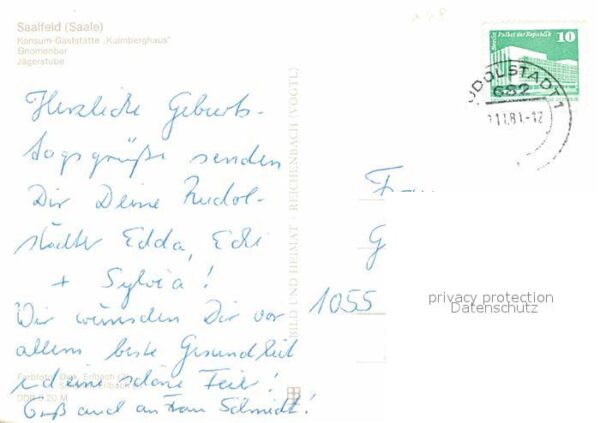 Saalfeld (Saale)
Konsum-Gaststätte „Kulmberghaus"
Gnomenbar
Jägerstube
Herzliche Geburts-
tagsgrüße senden
Dir Deine Rudol-
städter Edda, Edi
+ Sylvia!
Wir wünschen Dir vor
allem beste Gesundheit
u. deine schöne Feier!
Gruß auch an Frau Schmidt!
DDR 0 20 M
BILD UND HEIMAT REICHENBACH (VOGTL)
Berlin Palast der Republik
10
RUDOLSTADT 1
682
11.81-12
F
G
1055
privacy protection
Datenschutz